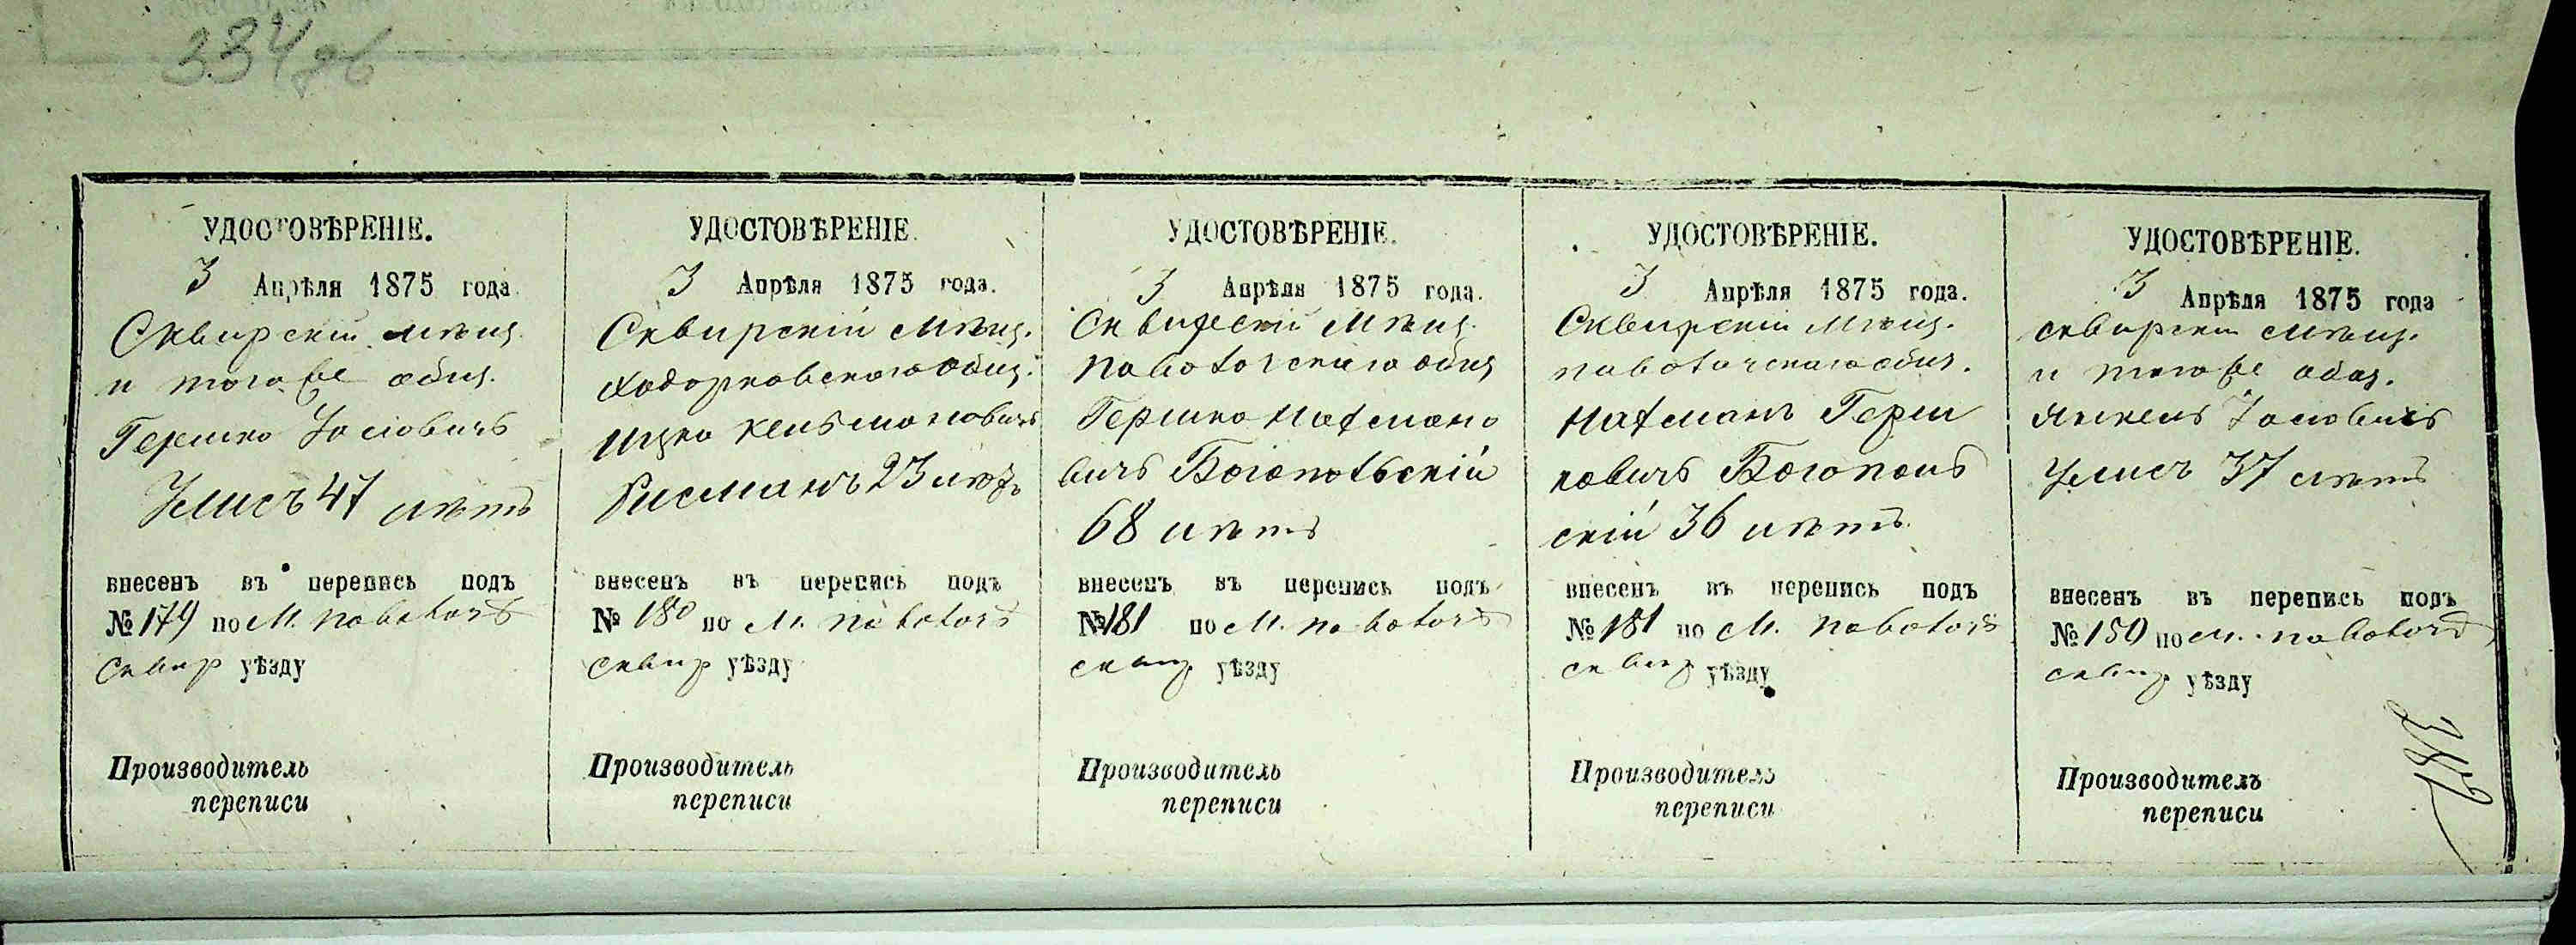 334 об
УДОСТОВѢРЕНІЕ.
3 Апрѣля 1875 года.
Сквирскій мѣщ.
и того же общ.
Гершко Іосіовичъ
47 лѣтъ
внесенъ въ перепись подъ
№ 179 по М. Паволочѣ
Сквир уѣзду
Производитель
переписи
УДОСТОВѢРЕНІЕ.
3 Апрѣля 1875 года.
Сквирскій мѣщ.
Ходорковскаго общ.
Ицко Кельмановичъ
23 лѣтъ
внесенъ въ перепись подъ
№ 180 по М. Паволочѣ
сквир уѣзду
Производитель
переписи
УДОСТОВѢРЕНІЕ.
3 Апрѣля 1875 года.
Сквирскій мѣщ.
Паволочскаго общ
Гершко Нахмано
вичъ Богопольскій
68 лѣтъ
внесенъ въ перепись подъ
№ 181 по М. Паволочѣ
сквир уѣзду
Производитель
переписи
УДОСТОВѢРЕНІЕ.
3 Апрѣля 1875 года.
Сквирскій мѣщ.
паволочскаго общ.
Нахманъ Герш
ковичъ Богополь
скій 36 лѣтъ
внесенъ въ перепись подъ
№ 181 по М. Паволочѣ
сквир уѣзду
Производитель
переписи
УДОСТОВѢРЕНІЕ.
3 Апрѣля 1875 года
сквирскій мѣщ.
и того же общ.
Янкель Іосіовичъ
37 лѣтъ
внесенъ въ перепись подъ
№ 150 по М. Паволочѣ
сквир. уѣзду
Производитель
переписи